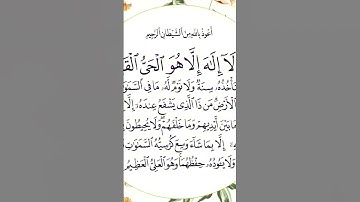 أَعُوذُ بِاللَّهِ مِنَ الشَّيْطَانِ الرَّجِيمِ
لَآ إِلَٰهَ إِلَّا هُوَ الْحَيُّ الْقَ
تَأْخُذُهُۥ سِنَةٌ وَلَا نَوْمٌ لَّهُۥ مَا فِي السَّمَوَ
الْأَرْضِ مَن ذَا الَّذِي يَشْفَعُ عِندَهُۥٓ إِلَّا
مَا بَيْنَ أَيْدِيهِمْ وَمَا خَلْفَهُمْ وَلَا يُحِيطُونَ
إِلَّا بِمَا شَآءَ وَسِعَ كُرْسِيُّهُ السَّمَوَٰتِ
وَلَا يَئُودُهُۥ حِفْظُهُمَا وَهُوَ الْعَلِيُّ الْعَظِيمُ